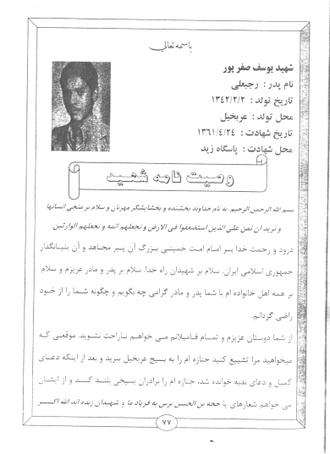 باسمه تعالی
شهید یوسف صفرپور
نام پدر : رجبعلی
تاریخ تولد : ۱۳۴۲/۲/۲
محل تولد : عربخیل
تاریخ شهادت : ۱۳۶۱/۴/۲۴
محل شهادت : پاسگاه زید
وصیت نامه شهید
بسم الله الرحمن الرحیم. به نام خداوند بخشنده و بخشایشگر مهربان و سلام بر منجی انسانها
و نرید ان نمن علی الذین استضعفوا فی الارض و نجعلهم ائمه و نجعلهم الوارثین
درود و رحمت خدا بر امام امت خمینی بزرگ آن پیر مجاهد و آن بنیانگذار
جمهوری اسلامی ایران. سلام بر شهیدان راه خدا. سلام بر پدر و مادر عزیزم و سلام
بر همه اهل خانواده ام با شما پدر و مادر گرامی چه بگویم و چگونه شما را از خود
راضی گردانم.
از شما دوستان عزیزم و تمام فامیلانم می خواهم ناراحت نشوید. موقعی که
میخواهید مرا تشییع کنید جنازه ام را به بسیج عربخیل ببرید و بعد از اینکه دعای
کمیل و دعای ندبه خوانده شد، جنازه ام را برادران بسیجی بلند کنند و از ایشان
می خواهم شعارهای یا حجه بن الحسن برس به فریاد ما و شهیدان زنده اند الله اکبر
۷۷